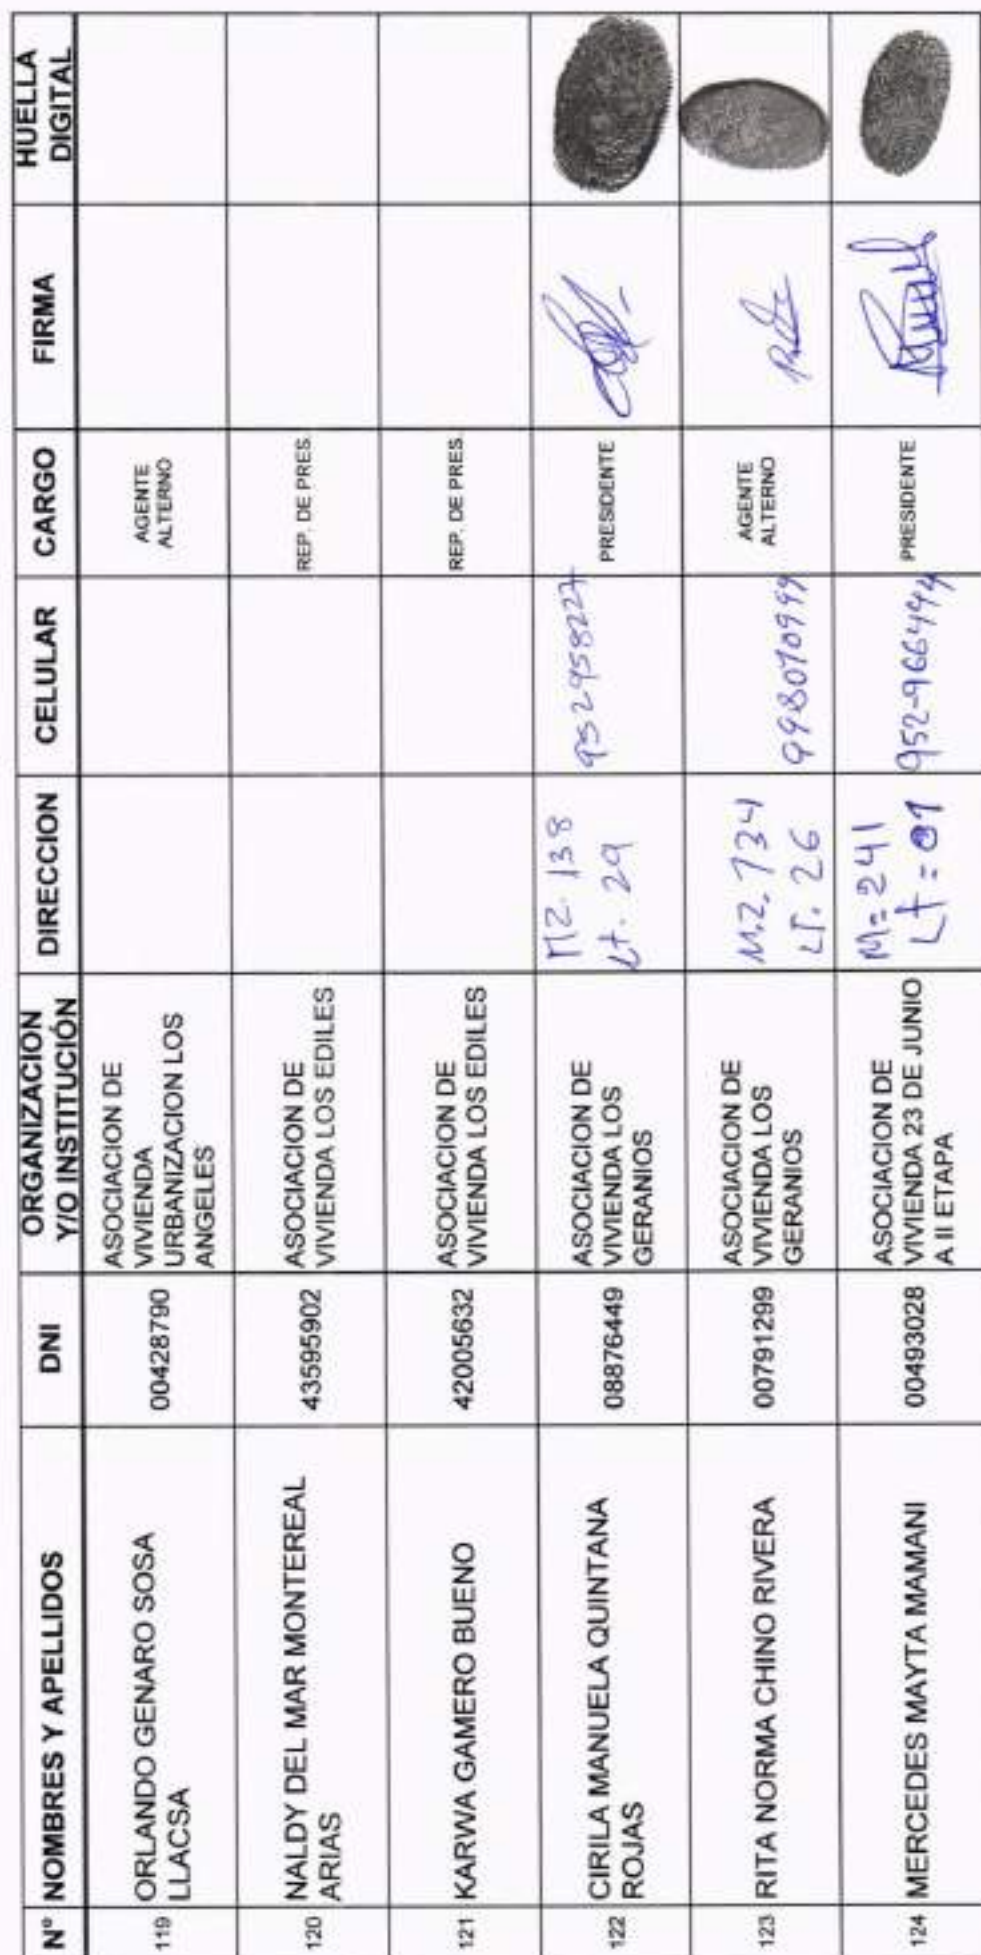 N° NOMBRES Y APELLIDOS DNI ORGANIZACION Y/O INSTITUCIÓN DIRECCION CELULAR CARGO FIRMA HUELLA DIGITAL
119 ORLANDO GENARO SOSA
LLACSA
00428790
ASOCIACION DE
VIVIENDA
URBANIZACION LOS
ANGELES
AGENTE
ALTERNO
120 NALDY DEL MAR MONTEREAL
ARIAS
43595902
ASOCIACION DE
VIVIENDA LOS EDILES
REP. DE PRES.
121 KARWA GAMERO BUENO
42005632
ASOCIACION DE
VIVIENDA LOS EDILES
REP. DE PRES.
122 CIRILA MANUELA QUINTANA
ROJAS
08876449
ASOCIACION DE
VIVIENDA LOS
GERANIOS
MZ. 138
Lt. 29
952958227
PRESIDENTE
123 RITA NORMA CHINO RIVERA
00791299
ASOCIACION DE
VIVIENDA LOS
GERANIOS
M.Z. 734
LT. 26
998010999
AGENTE
ALTERNO
124 MERCEDES MAYTA MAMANI
00493028
ASOCIACION DE
VIVIENDA 23 DE JUNIO
A II ETAPA
M= 241
Lt = 01
952-966494
PRESIDENTE